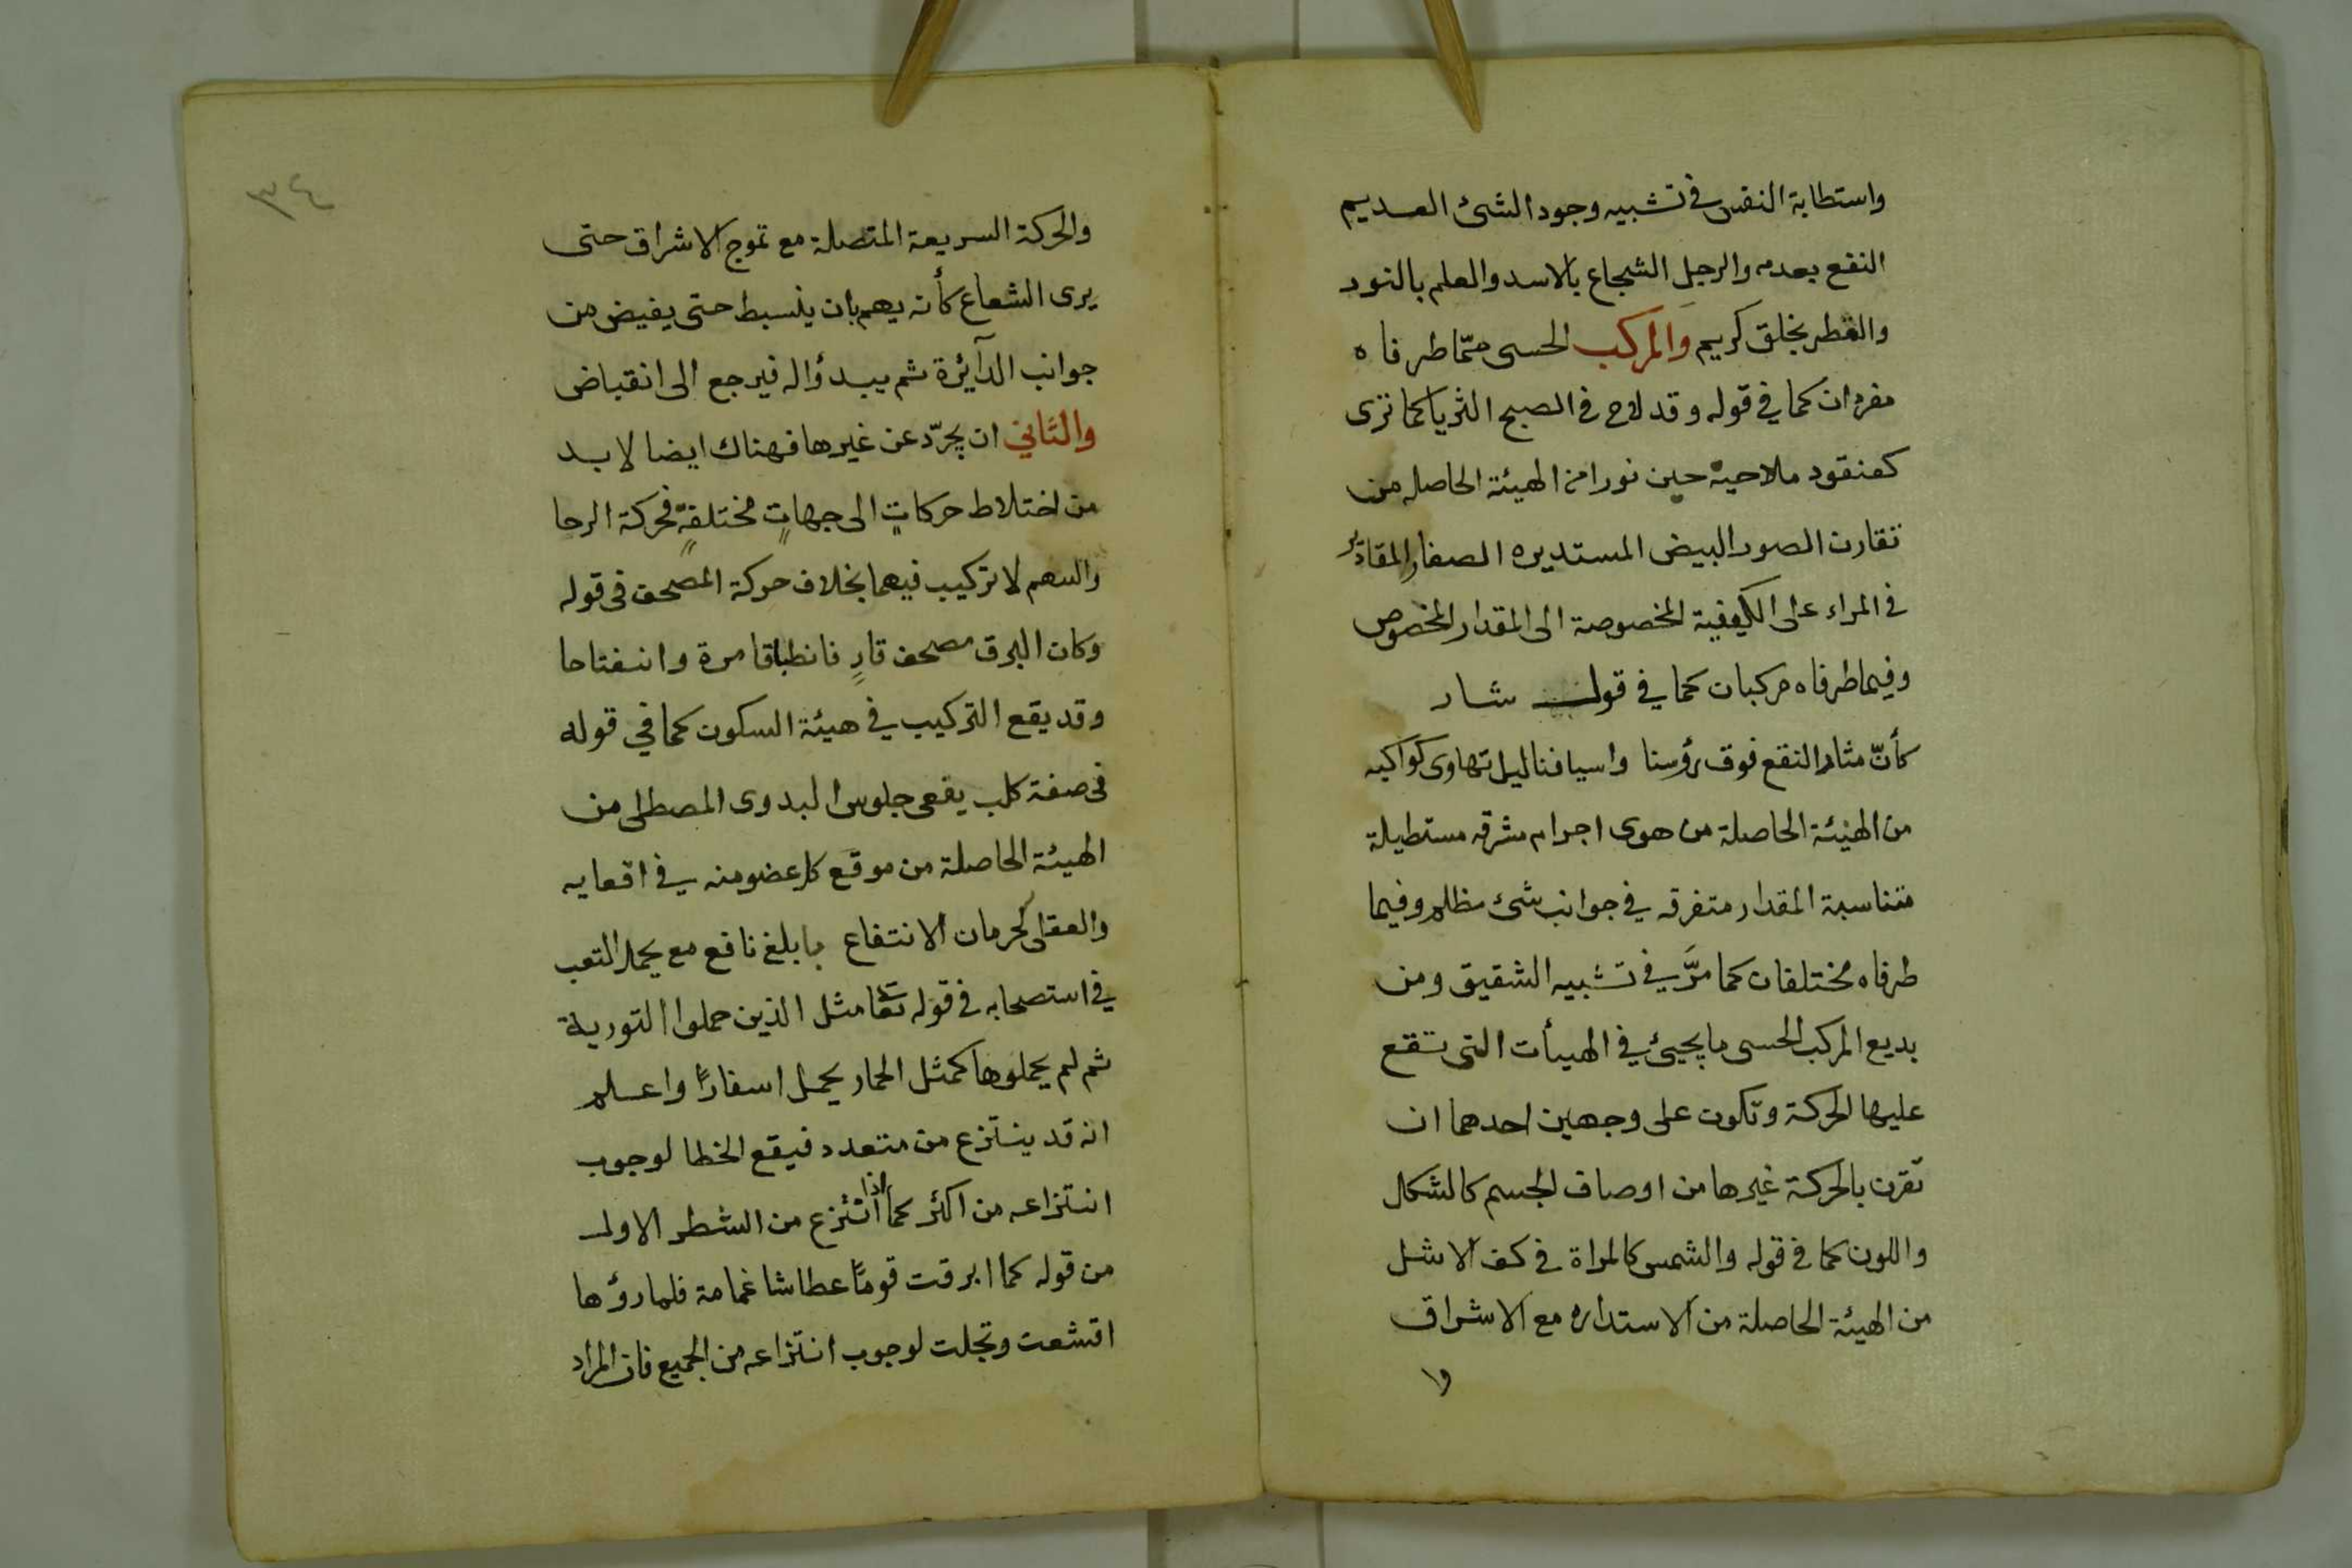 واستطابة النفس في تشبيه وجود الشئ العديم
النفع بعدمه والرجل الشجاع بالاسد والعلم بالنور
والعطر بخلق كريم والمركب الحسى ممّا طرفاه
مفردان كما في قوله وقد لاح في الصبح الثريا كما ترى
كعنقود ملاحية حين نورا من الهيئة الحاصله من
تقارن الصور البيض المستديره الصغار المقادير
في المراء على الكيفية المخصوصة الى المقدار المخصوص
وفيما طرفاه مركبان كما في قول شار
كأنّ مثار النقع فوق رؤسنا واسيافنا ليل تهاوى كواكبه
من الهيئة الحاصلة من هوى اجرام مشرقه مستطيلة
متناسبة المقدار متفرقه في جوانب شئ مظلم وفيما
طرفاه مختلفان كما مرَّ في تشبيه الشقيق ومن
بديع المركب الحسى ما يجيئ في الهيأت التى تقع
عليها الحركة وتكون على وجهين احدهما ان
تقرن بالحركة غيرها من اوصاف الجسم كالشكل
واللون كما في قوله والشمس كالمراة في كف الاشل
من الهيئة الحاصلة من الاستداره مع الاشراق
وا
٣٤
والحركة السريعة المتصلة مع تموج الاشراق حتى
يرى الشعاع كأنه يهم بان ينبسط حتى يفيض من
جوانب الدآئرة ثم يبدؤاله فيرجع الى انقباض
والثاني ان يجرّد عن غيرها فهناك ايضا لا بد
من اختلاط حركاتٍ الى جهاتٍ مختلفةٍ فحركة الرحا
والسهم لا تركيب فيهما بخلاف حركة المصحف في قوله
وكان البرق مصحف قارٍ فانطباقا مرة وانفتاحا
وقد يقع التركيب في هيئة السكون كما في قوله
في صفة كلب يقعى جلوس البدوى المصطلى من
الهيئة الحاصلة من موقع كل عضو منه في اقعايه
والعقلى كحرمان الانتفاع بابلغ نافع مع يحمل التعب
في استصحابه في قوله تعا مثل الذين حملوا التورية
ثم لم يحملوها كمثل الحمار يحمل اسفارًا واعلم
انه قد ينتزع من متعدد فيقع الخطا لوجوب
انتزاعه من اكثر كما اذا انتزع من الشطر الاول
من قوله كما ابرقت قومًا عطاشا غمامة فلما رؤها
اقشعت وتجلت لوجوب انتزاعه من الجميع فان المراد